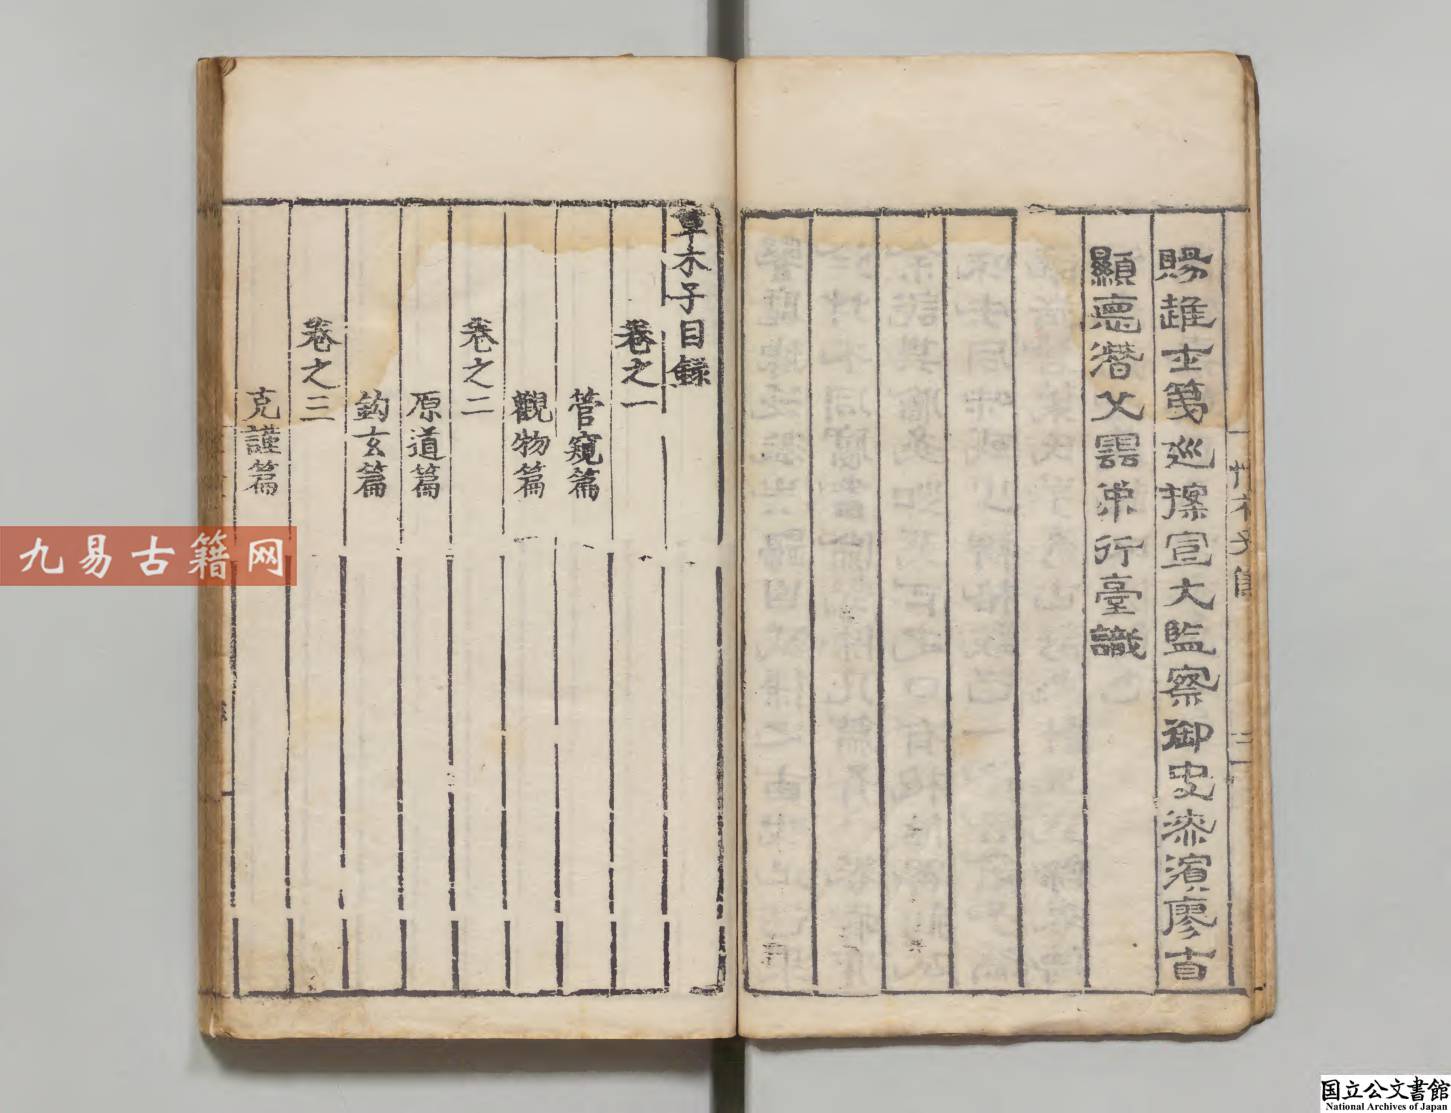 賜進士第巡按宣大監察御史漆濱廖自
顯德潛父書於行臺識
草木子目錄
卷之一
管窺篇
觀物篇
卷之二
原道篇
鈎玄篇
卷之三
克謹篇
九易古籍网
国立公文書館
National Archives of Japan